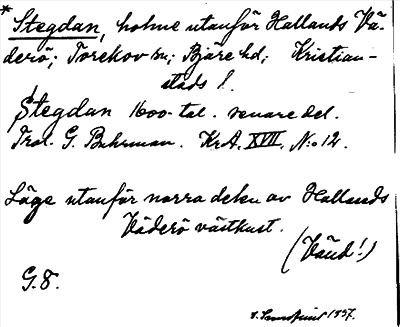 * Stegdan, holme utanför Hallands Vä-
derö; Torekov sn; Bjäre hd; Kristian-
stads l.
Stegdan 1600-tal. senare del.
Trol. G. Buhrman. KrA. XVII, N:o 12.
Läge utanför norra delen av Hallands
Väderö västkust.
(Vänd!)
G.8.
1937.